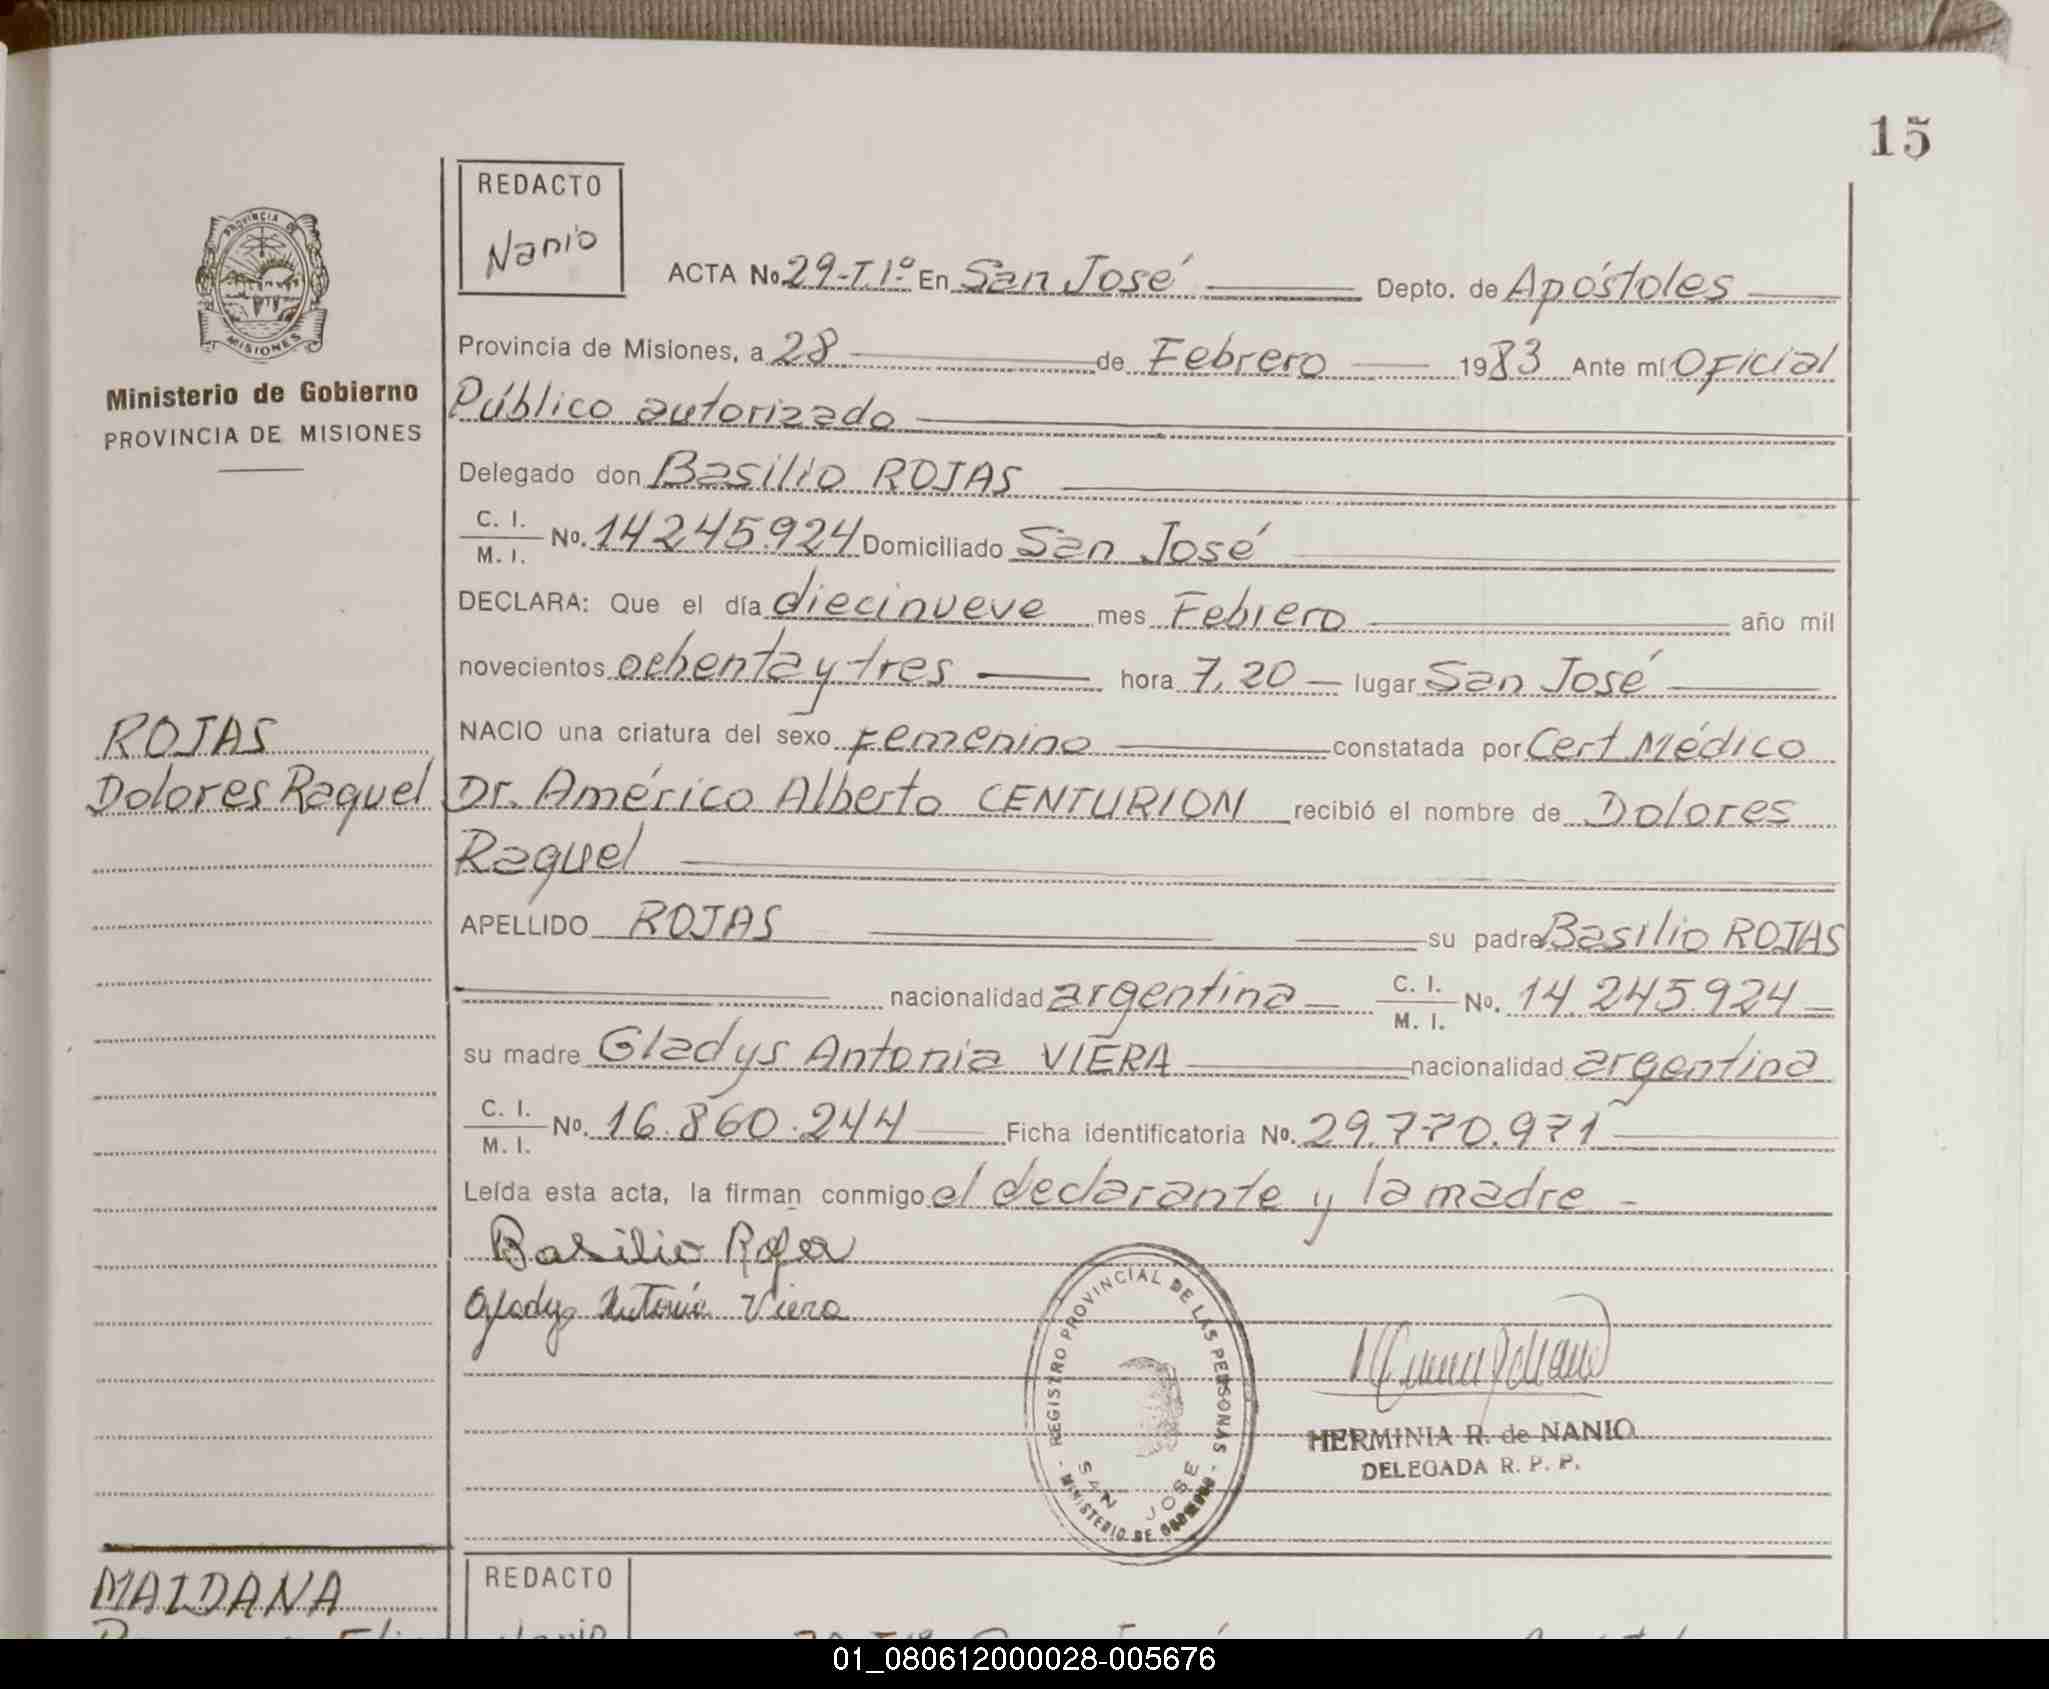 15
REDACTO
Nanio
PROVINCIA DE
MISIONES
Ministerio de Gobierno
PROVINCIA DE MISIONES
ACTA No. 29-T.1º En San José Depto. de Apóstoles
Provincia de Misiones, a 28 de Febrero 1983 Ante mí Oficial
Público autorizado
Delegado don Basilio ROJAS
C. I.
M. I. No. 14245.924 Domiciliado San José
DECLARA: Que el día diecinueve mes Febrero año mil
novecientos ochenta y tres hora 7,20 lugar San José
NACIO una criatura del sexo Femenino constatada por Cert Médico
ROJAS
Dolores Raquel
Dr. Américo Alberto CENTURION recibió el nombre de Dolores
Raquel
APELLIDO ROJAS su padre Basilio ROJAS
nacionalidad argentina C. I.
M. I. No. 14.245.924
su madre Gladys Antonia VIERA nacionalidad argentina
C. I.
M. I. No. 16.860.244 Ficha identificatoria No. 29.770.971
Leída esta acta, la firman conmigo el declarante y la madre
Basilio Rojas
Gladys Antonia Viera
- REGISTRO PROVINCIAL DE LAS PERSONAS -
SAN JOSE
MINISTERIO DE GOBIERNO
HERMINIA R. de NANIO
DELEGADA R. P. P.
MAIDANA
REDACTO
01_080612000028-005676